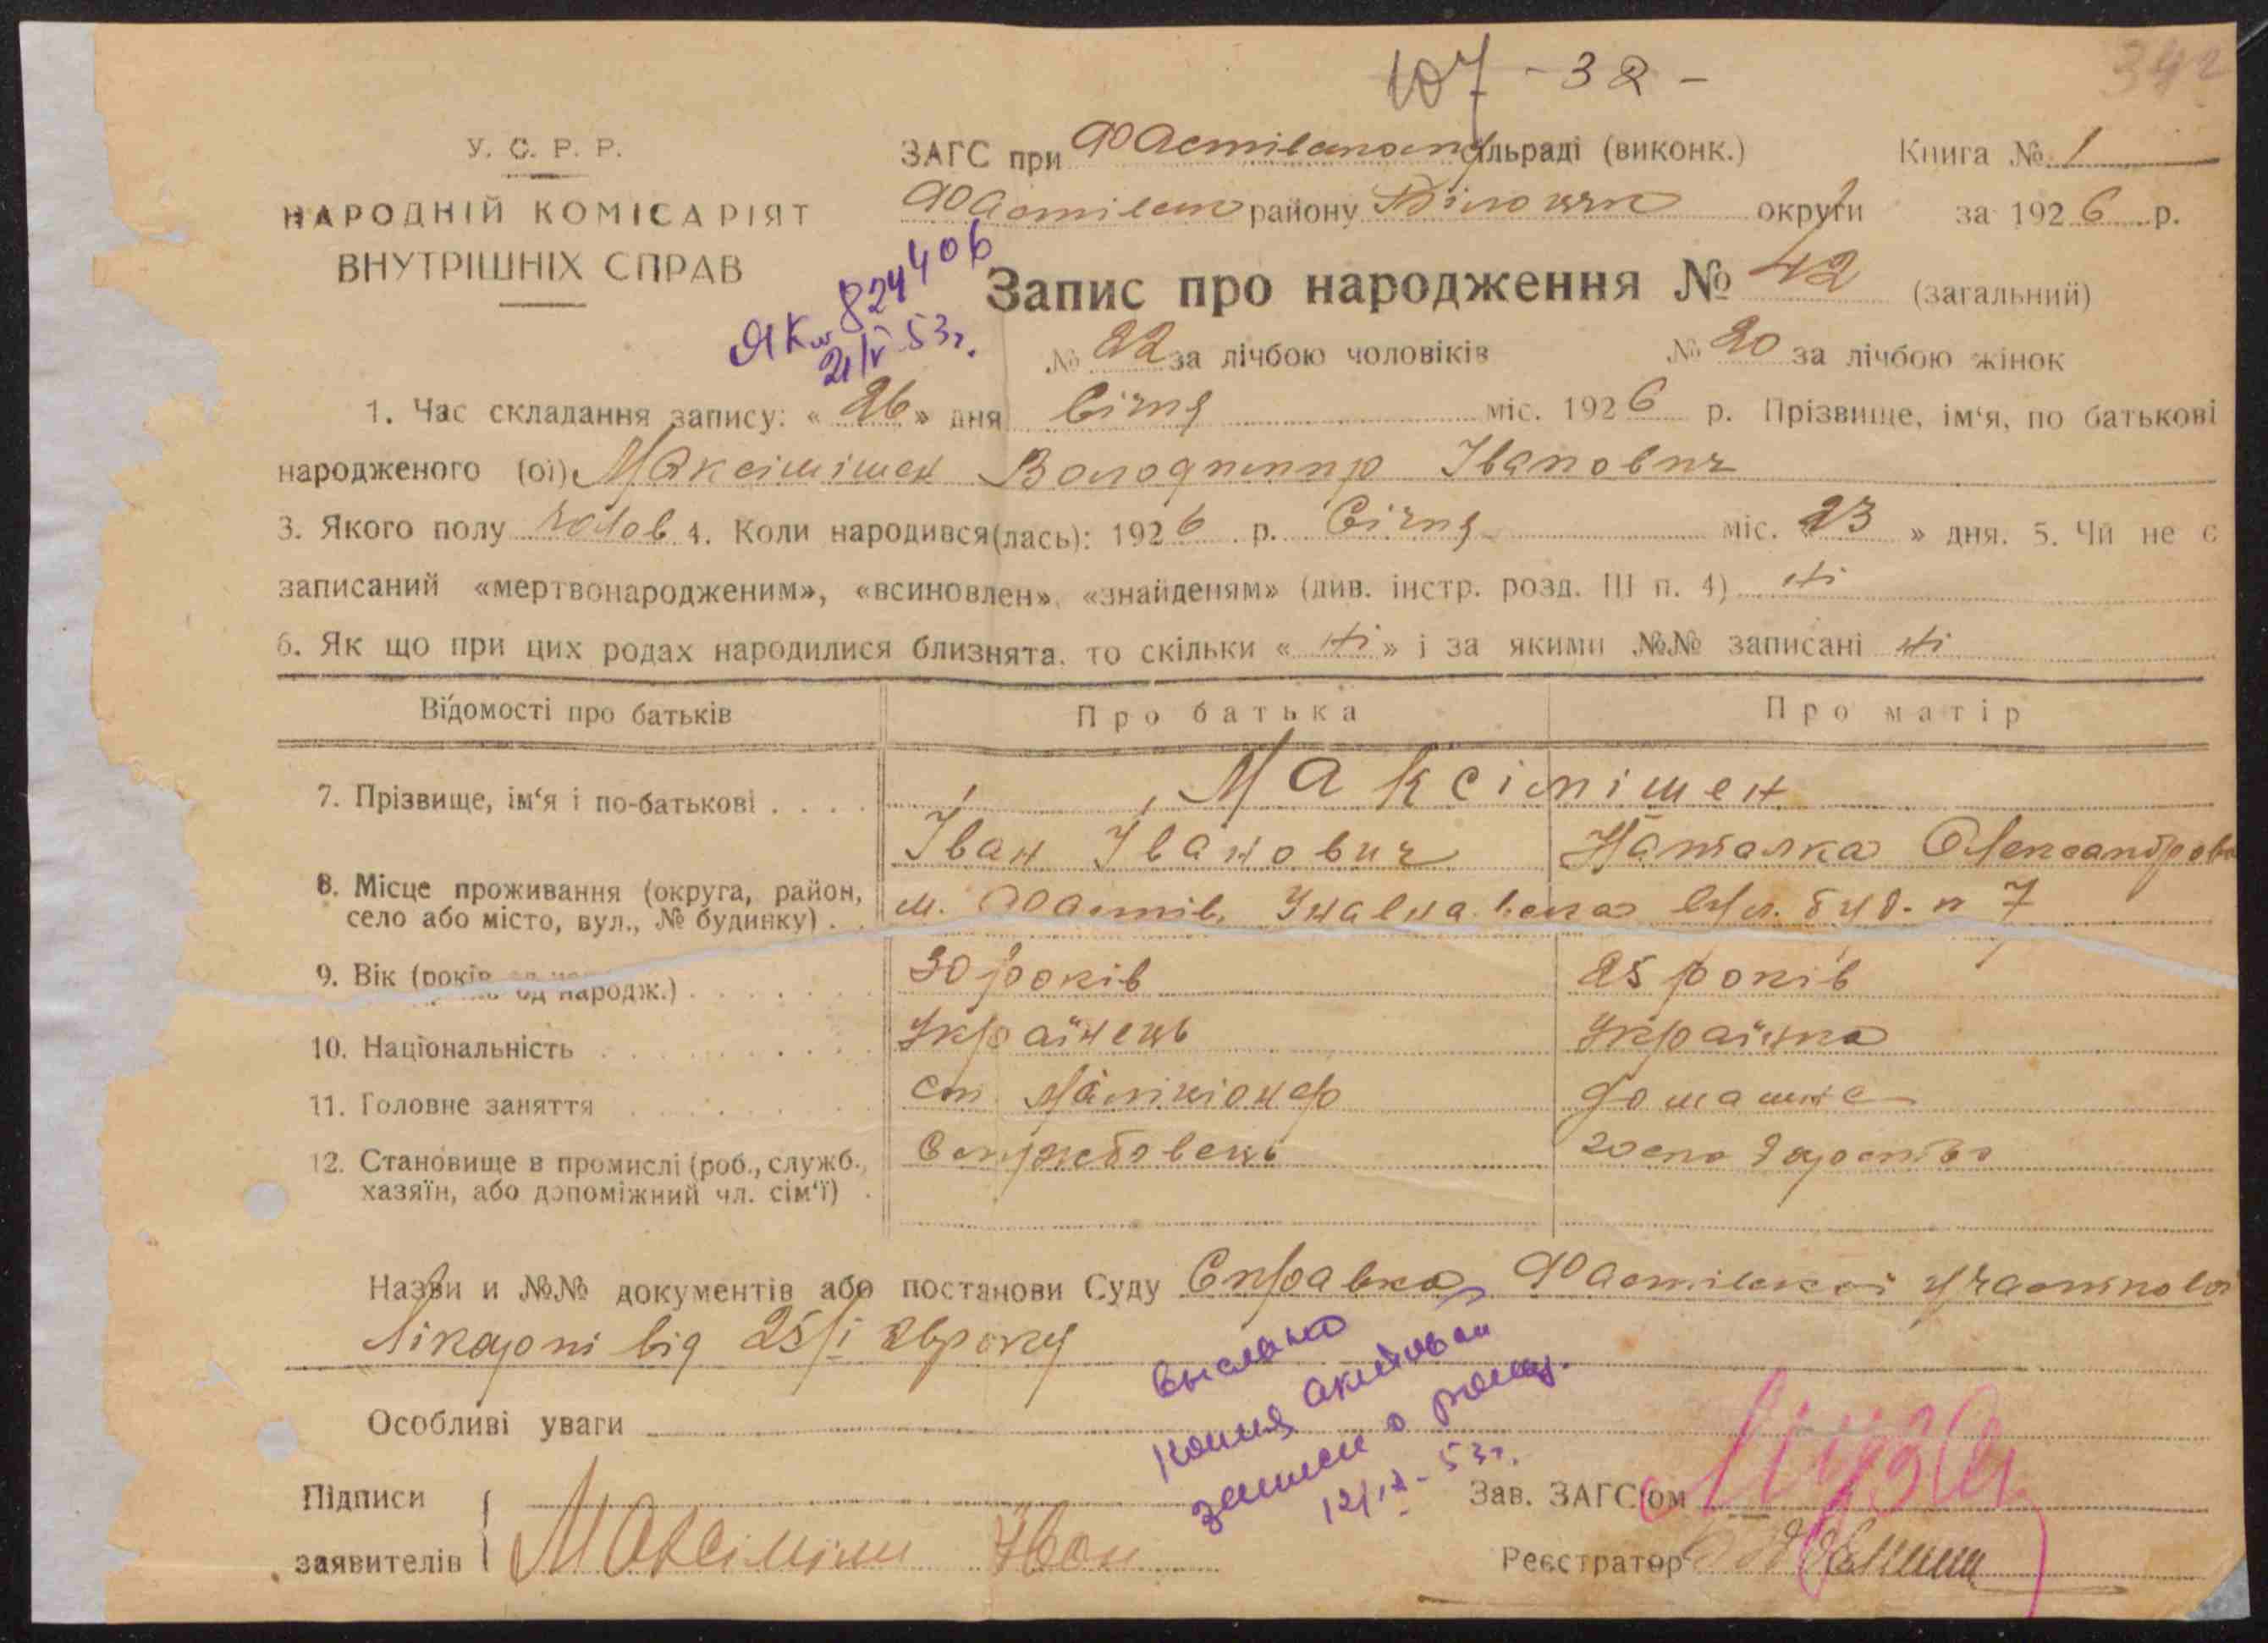 107 - 32 -
342
У. С. Р. Р.
НАРОДНІЙ КОМІСАРІЯТ
ВНУТРІШНІХ СПРАВ
ЗАГС при Фастівськ сільраді (виконк.) Книга № 1
району округи за 1926 р.
Запис про народження № 42 (загальний)
824406
21/V 53г.
№ 22 за лічбою чоловіків № 20 за лічбою жінок
1. Час складання запису: « 26 » дня Січня міс. 1926 р. Прізвище, ім'я, по батькові
народженого (ої) Максімішен Володимир Іванович
3. Якого полу чолов 4. Коли народився(лась): 1926 р. Січня міс. « 23 » дня. 5. Чи не є
записаний «мертвонародженим», «всиновлен», «знайденям» (див. інстр. розд. III п. 4) ні
6. Як що при цих родах народилися близнята, то скільки « ні » і за якими №№ записані ні
Відомості про батьків Про батька Про матір
7. Прізвище, ім'я і по-батькові . . . . Максімішен
Іван Іванович Наталка Олександрова
8. Місце проживання (округа, район,
село або місто, вул., № будинку) . . м. Фастів, вул. буд. n 7
9. Вік (років од народж.) 30 років 25 років
10. Національність Українець Українка
11. Головне заняття домашнє
12. Становище в промислі (роб., служб.,
хазяїн, або допоміжний чл. сім'ї) . Служебовець господарство
Назви и №№ документів або постанови Суду Справка Фастівскої участкової
Лікарні від 25/I 26 року
Особливі уваги
выслана
копия актовой
записи о рожд.
12/IX - 53г.
Підписи
заявителів Максімішен Іван
Зав. ЗАГС'ом
Реєстратор